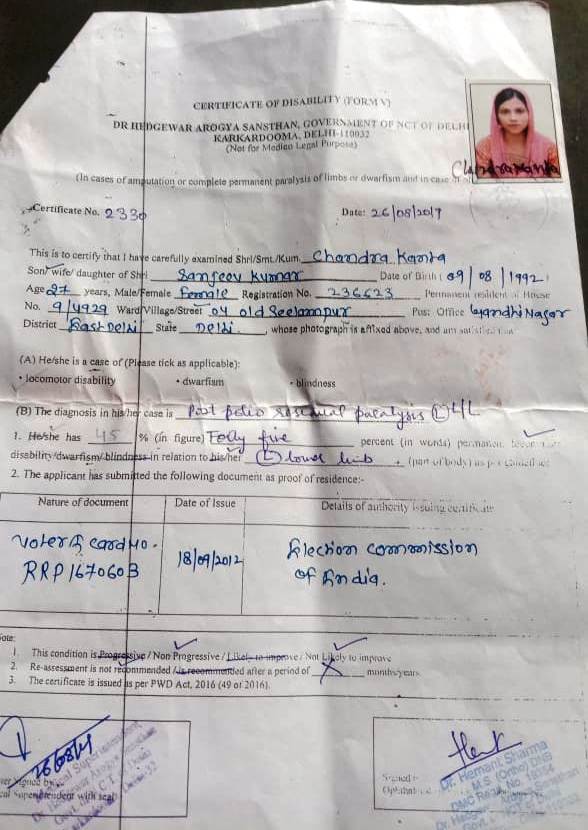 CERTIFICATE OF DISABILITY (FORM V)
DR HEDGEWAR AROGYA SANSTHAN, GOVERNMENT OF NCT OF DELHI
KARKARDOOMA, DELHI-110032
(Not for Medico Legal Purpose)
Chandra Kanta
(In cases of amputation or complete permanent paralysis of limbs or dwarfism and in case of
Certificate No. 2330
Date: 26/08/2017
This is to certify that I have carefully examined Shri/Smt./Kum. Chandra Kanta
Son/ wife/ daughter of Shri Sanjeev Kumar Date of Birth (09/08/1992)
Age 27 years, Male/Female Female Registration No. 236623 Permanent resident of House
No. 9/4929 Ward/Village/Street 04 old Seelampur Post Office Gandhi Nagar
District East Delhi State Delhi, whose photograph is affixed above, and am satisfied that
(A) He/she is a case of (Please tick as applicable):
• locomotor disability • dwarfism • blindness
(B) The diagnosis in his/her case is Post polio residual paralysis (L) L/L
1. He/she has 45 % (in figure) Forty five percent (in words) permanent locomotor
disability/dwarfism/blindness in relation to his/her (L) lower limb (part of body) as per guidelines
2. The applicant has submitted the following document as proof of residence:-
Nature of document Date of Issue Details of authority issuing certificate
Voter card No. RRP1670603 18/09/2012 Election commission of India.
Note:
1. This condition is Progressive / Non Progressive / Likely to improve / Not Likely to improve
2. Re-assessment is not recommended / is recommended after a period of months/years
3. The certificate is issued as per PWD Act, 2016 (49 of 2016).
Signed by
Superintendent with seal
Dr. Hemant Sharma
M.S. (Ortho) DNB